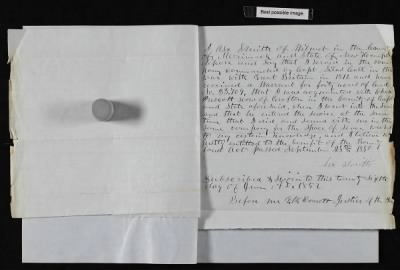 Best possible image
I Asa Smith of Wilmot in the County
of Merrimack and State of New Hampshire
depose and say that I served in the com
pany commanded by Capt. Silas Call in the
war with Great Britain in 1812 and have
received a Warrant for forty acres of land
that I was acquainted with
now of Grafton in the County of Grafton
and State aforesaid, when I went into
and that he entered the service at the same
time that I did and served with me in the
same company for the space of Seven weeks
to my certain knowledge, and I believe
justly entitled to the benefit of the Bounty
Land Act passed September 28th 1850
Asa Smith
Subscribed & Sworn to this twenty sixth
day of June A.D. 1851
Before me Justice of the